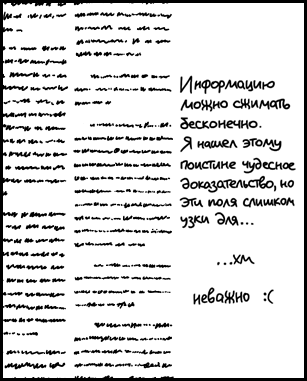 Информацию
можно сжимать
бесконечно.
Я нашел этому
поистине чудесное
доказательство, но
эти поля слишком
узки для...
...хм
неважно :(